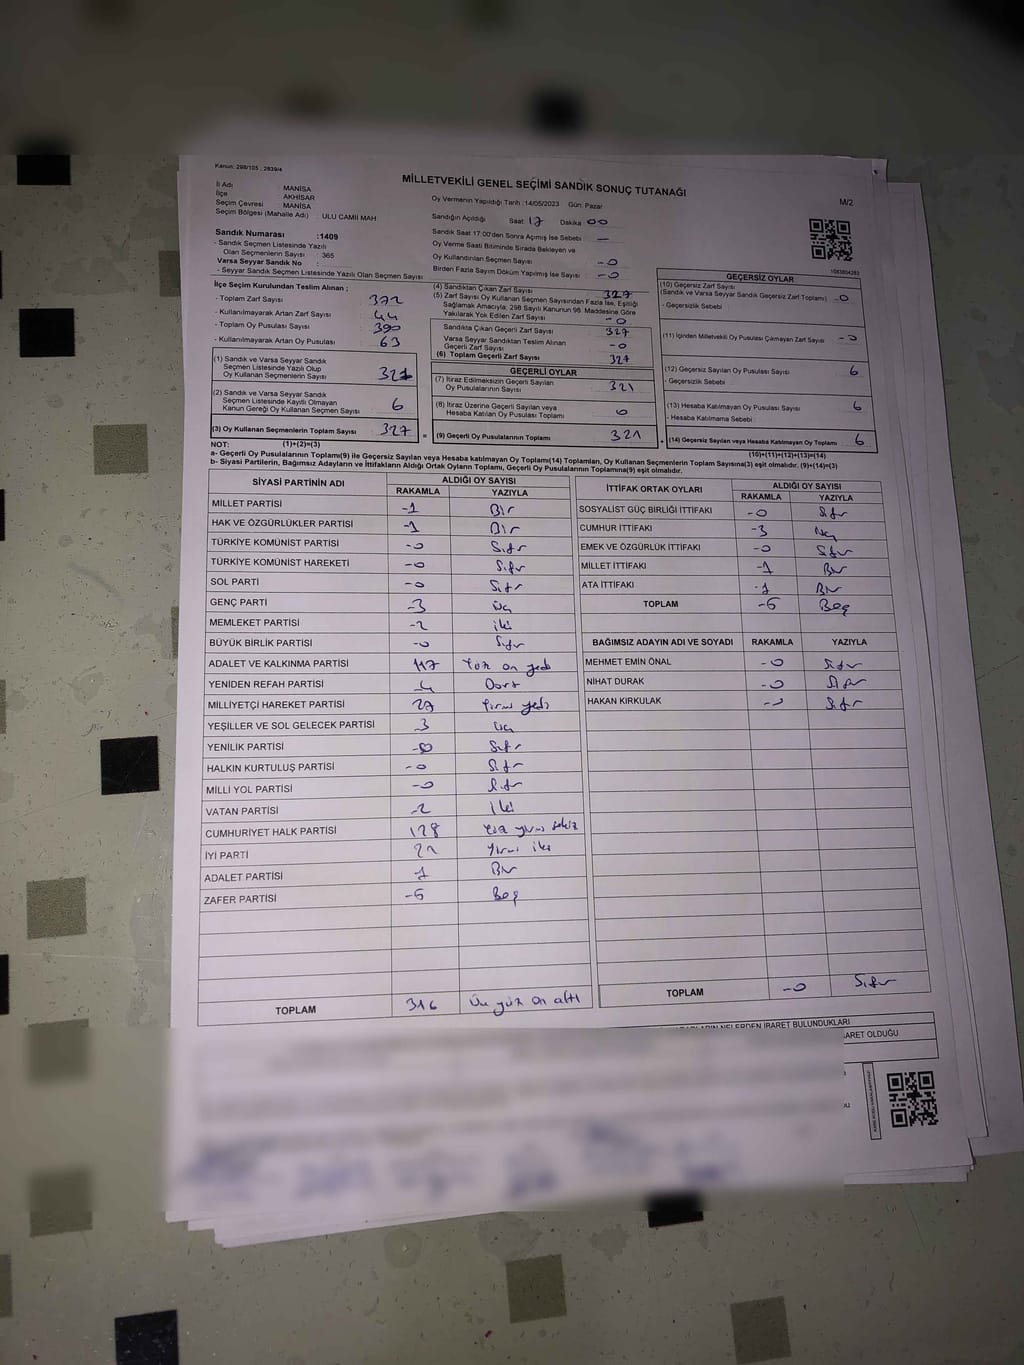 Kanun: 298/105 , 2839/4
MİLLETVEKİLİ GENEL SEÇİMİ SANDIK SONUÇ TUTANAĞI
M/2
İl Adı : MANİSA
İlçe : AKHİSAR
Seçim Çevresi : MANİSA
Seçim Bölgesi (Mahalle Adı) : ULU CAMİİ MAH
Oy Vermenin Yapıldığı Tarih :14/05/2023 Gün: Pazar
Sandığın Açıldığı Saat 17 Dakika 00
Sandık Saat 17:00'den Sonra Açılmış İse Sebebi —
Oy Verme Saati Bitiminde Sırada Bekleyen ve
Oy Kullandırılan Seçmen Sayısı -0
Birden Fazla Sayım Döküm Yapılmış İse Sayısı -0
Sandık Numarası :1409
- Sandık Seçmen Listesinde Yazılı
Olan Seçmenlerin Sayısı : 365
Varsa Seyyar Sandık No :
- Seyyar Sandık Seçmen Listesinde Yazılı Olan Seçmen Sayısı
İlçe Seçim Kurulundan Teslim Alınan ;
- Toplam Zarf Sayısı 372
- Kullanılmayarak Artan Zarf Sayısı 44
- Toplam Oy Pusulası Sayısı 390
- Kullanılmayarak Artan Oy Pusulası 63
(1) Sandık ve Varsa Seyyar Sandık
Seçmen Listesinde Yazılı Olup
Oy Kullanan Seçmenlerin Sayısı 321
(2) Sandık ve Varsa Seyyar Sandık
Seçmen Listesinde Kayıtlı Olmayan
Kanun Gereği Oy Kullanan Seçmen Sayısı 6
(3) Oy Kullanan Seçmenlerin Toplam Sayısı 327
(4) Sandıktan Çıkan Zarf Sayısı 327
(5) Zarf Sayısı Oy Kullanan Seçmen Sayısından Fazla İse, Eşitliği
Sağlamak Amacıyla; 298 Sayılı Kanunun 98. Maddesine Göre
Yakılarak Yok Edilen Zarf Sayısı -0
Sandıkta Çıkan Geçerli Zarf Sayısı 327
Varsa Seyyar Sandıktan Teslim Alınan
Geçerli Zarf Sayısı -0
(6) Toplam Geçerli Zarf Sayısı 327
GEÇERLİ OYLAR
(7) İtiraz Edilmeksizin Geçerli Sayılan
Oy Pusulalarının Sayısı 321
(8) İtiraz Üzerine Geçerli Sayılan veya
Hesaba Katılan Oy Pusulası Toplamı 0
= (9) Geçerli Oy Pusulalarının Toplamı 321
1083804283
GEÇERSİZ OYLAR
(10) Geçersiz Zarf Sayısı
(Sandık ve Varsa Seyyar Sandık Geçersiz Zarf Toplamı) -0
- Geçersizlik Sebebi
(11) İçinden Milletvekili Oy Pusulası Çıkmayan Zarf Sayısı -0
(12) Geçersiz Sayılan Oy Pusulası Sayısı 6
- Geçersizlik Sebebi
(13) Hesaba Katılmayan Oy Pusulası Sayısı 6
- Hesaba Katılmama Sebebi
+ (14) Geçersiz Sayılan veya Hesaba Katılmayan Oy Toplamı 6
NOT: (1)+(2)=(3)
(10)+(11)+(12)+(13)=(14)
a- Geçerli Oy Pusulalarının Toplamı(9) ile Geçersiz Sayılan veya Hesaba katılmayan Oy Toplamı(14) Toplamları, Oy Kullanan Seçmenlerin Toplam Sayısına(3) eşit olmalıdır. (9)+(14)=(3)
b- Siyasi Partilerin, Bağımsız Adayların ve İttifakların Aldığı Ortak Oyların Toplamı, Geçerli Oy Pusulalarının Toplamına(9) eşit olmalıdır.
SİYASİ PARTİNİN ADI ALDIĞI OY SAYISI
RAKAMLA YAZIYLA
MİLLET PARTİSİ -1 Bir
HAK VE ÖZGÜRLÜKLER PARTİSİ -1 Bir
TÜRKİYE KOMÜNİST PARTİSİ -0 Sıfır
TÜRKİYE KOMÜNİST HAREKETİ -0 Sıfır
SOL PARTİ -0 Sıfır
GENÇ PARTİ -3 Üç
MEMLEKET PARTİSİ -2 iki
BÜYÜK BİRLİK PARTİSİ -0 Sıfır
ADALET VE KALKINMA PARTİSİ 117 Yüz on yedi
YENİDEN REFAH PARTİSİ 4 Dört
MİLLİYETÇİ HAREKET PARTİSİ 27 Yirmi yedi
YEŞİLLER VE SOL GELECEK PARTİSİ 3 Üç
YENİLİK PARTİSİ -0 Sıfır
HALKIN KURTULUŞ PARTİSİ -0 Sıfır
MİLLİ YOL PARTİSİ -0 Sıfır
VATAN PARTİSİ -2 iki
CUMHURİYET HALK PARTİSİ 128 Yüz yirmi sekiz
İYİ PARTİ 22 Yirmi iki
ADALET PARTİSİ 1 Bir
ZAFER PARTİSİ -5 Beş
TOPLAM 316 Üç yüz on altı
İTTİFAK ORTAK OYLARI ALDIĞI OY SAYISI
RAKAMLA YAZIYLA
SOSYALİST GÜÇ BİRLİĞİ İTTİFAKI -0 Sıfır
CUMHUR İTTİFAKI -3 Üç
EMEK VE ÖZGÜRLÜK İTTİFAKI -0 Sıfır
MİLLET İTTİFAKI -1 Bir
ATA İTTİFAKI -1 Bir
TOPLAM -5 Beş
BAĞIMSIZ ADAYIN ADI VE SOYADI RAKAMLA YAZIYLA
MEHMET EMİN ÖNAL -0 Sıfır
NİHAT DURAK -0 Sıfır
HAKAN KIRKULAK -0 Sıfır
TOPLAM -0 Sıfır
NELERDEN İBARET BULUNDUKLARI
OLDUĞU